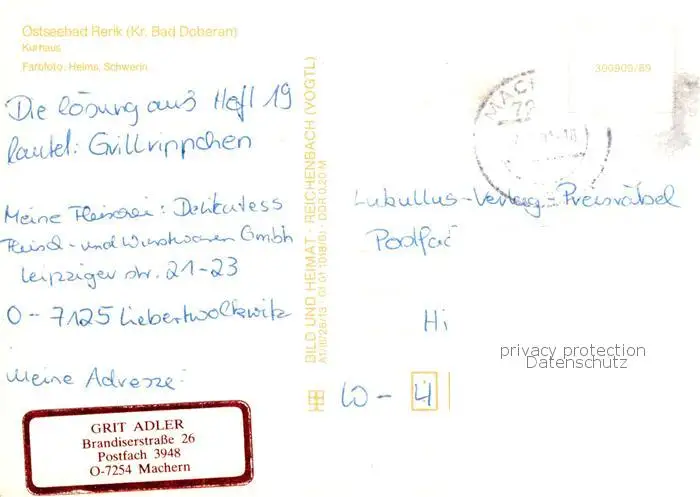 Ostseebad Rerik (Kr. Bad Doberan)
Kurhaus
Farbfoto: Helms, Schwerin
300909/89
MACH
72
Die lösung aus Heft 19
lautet: Grillrippchen
Meine Fleiserei: Delikatess
Fleisch- und Wurstwaren Gmbh
Leipziger str. 21-23
O - 7125 Liebertwolkwitz
Meine Adresse:
GRIT ADLER
Brandiserstraße 26
Postfach 3948
O-7254 Machern
BILD UND HEIMAT · REICHENBACH (VOGTL)
A1/III/26/13 · 01 01 1018/01 · DDR 0,20 M
Lukullus-Verlag-Preisrätsel
Postfac
Hi
W - 4
privacy protection
Datenschutz